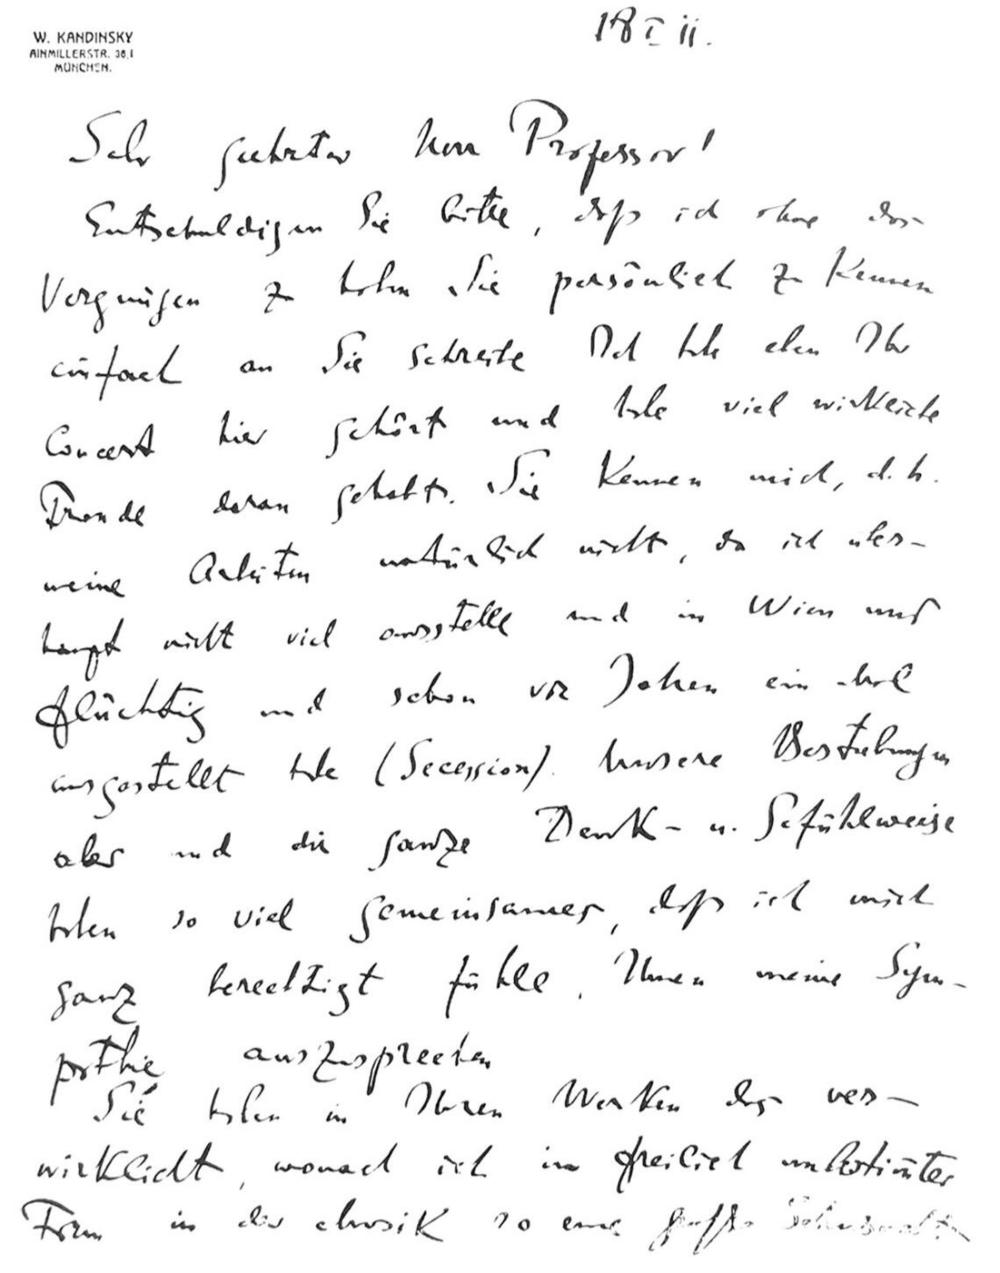 W. KANDINSKY
AINMILLERSTR. 36,I
MÜNCHEN.
18 I 11.
Sehr geehrter Herr Professor!
Entschuldigen Sie bitte, daß ich ohne das
Vergnügen zu haben Sie persönlich zu kennen
einfach an Sie schreibe. Ich habe eben Ihr
Concert hier gehört und habe viel wirkliche
Freude daran gehabt. Sie kennen mich, d. h.
meine Arbeiten natürlich nicht, da ich über-
haupt nicht viel ausstelle und in Wien nur
flüchtig und schon vor Jahren ein Mal
ausgestellt habe (Secession). Unsere Bestrebungen
aber und die ganze Denk- u. Gefühlsweise
haben so viel Gemeinsames, daß ich mich
ganz berechtigt fühle, Ihnen meine Sym-
pathie auszusprechen.
Sie haben in Ihren Werken das ver-
wirklicht, wonach ich in freilich unbestimmter
Form in der Musik so eine große Sehnsucht